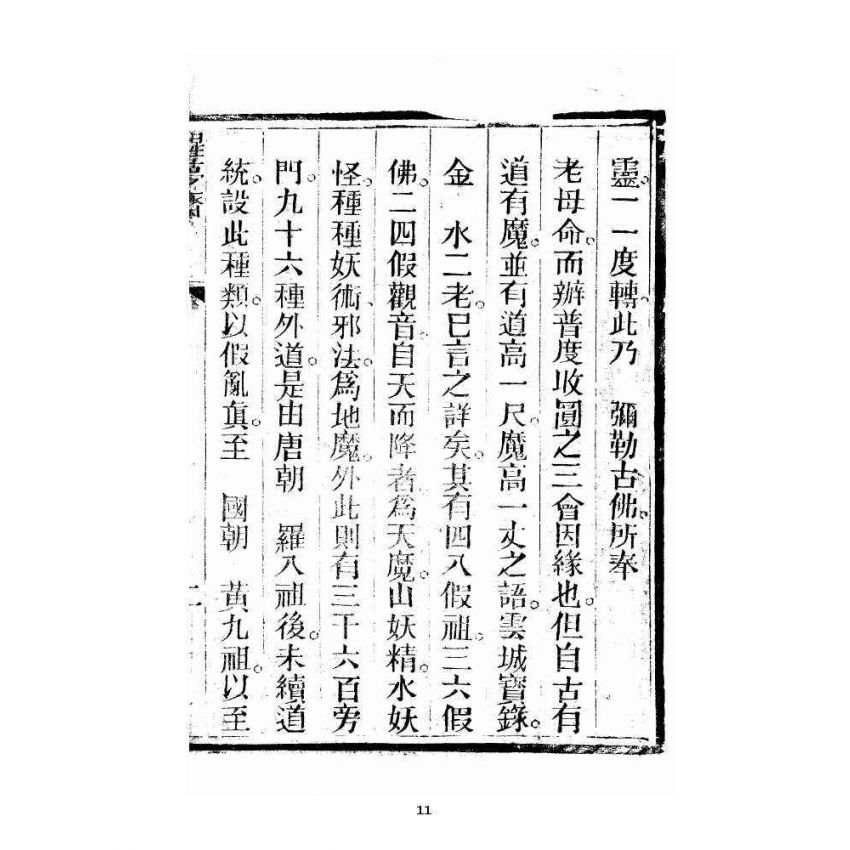 靈。一一度轉。此乃　彌勒古佛。所奉
老母命。而辦普度收圓之三會因緣也。但自古有
道有魔。並有道高一尺。魔高一丈之語。雲城寶籙。
金　水二老。已言之詳矣。其有四八假祖。三六假
佛。二四假觀音。自天而降者爲天魔。山妖精。水妖
怪。種種妖術、邪法。爲地魔。外此則有三千六百旁
門。九十六種外道。是由唐朝　羅八祖後。未續道
統。設此種類。以假亂眞。至　國朝　黃九祖。以至
二
11